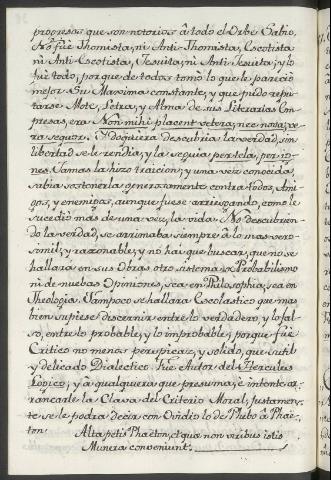 progresos que son notorios â todo el Orbe Sabio,
No fùe Thomista, ni Anti-Thomista, Escotista
ni Anti-Escotista, Jesuita, ni Anti-Jesuita; y lo
fuè todo; porque de todas tomò lo que le pareciò
mejor. Su Maxima constante, y que pudo repu-
tarse Mote, Letra, y Alma de sus Literarias Em-
presas, era Non mihi placent vetera, nec nova; ve-
ra sequor. Y doquiera descubria la verdad, sin
libertad se le rendia; y la seguia per tela, per ig-
nes. Jamas la hizo traicion; y una vez conocida
sabia sostenerla generosamente contra todos, Ami-
gos, y enemigos, aunque fuese arriesgando, como le
sucediò mas de una vez, la vida. No descubrien-
do la verdad, se arrimaba siempre â lo mas vero-
simil, y razonable; y no hai que buscar, que no se
hallarà en sus Obras otro sistema de Probabilismo
ni de nuevas Opiniones, sea en Philosophia, sea en
Theologia. Tampoco se hallarà Escolastico que mas
bien supiese discernir entre lo verdadero y lo fal-
so, entre lo probable, y lo improbable; porque fuè
Critico no menos perspicaz, y solido, que sutil
y delicado Dialectico. Fue Autor del Hercules
Logico; y â qualquiera que presuma, è intente ar-
rancarle la Clava del Criterio Moral, justamen-
te se le podrà decir con Ovidio lo de Phebo â Phaè-
ton:
Alta petis Phaëton, et quæ non viribus istis
Munera conveniunt.